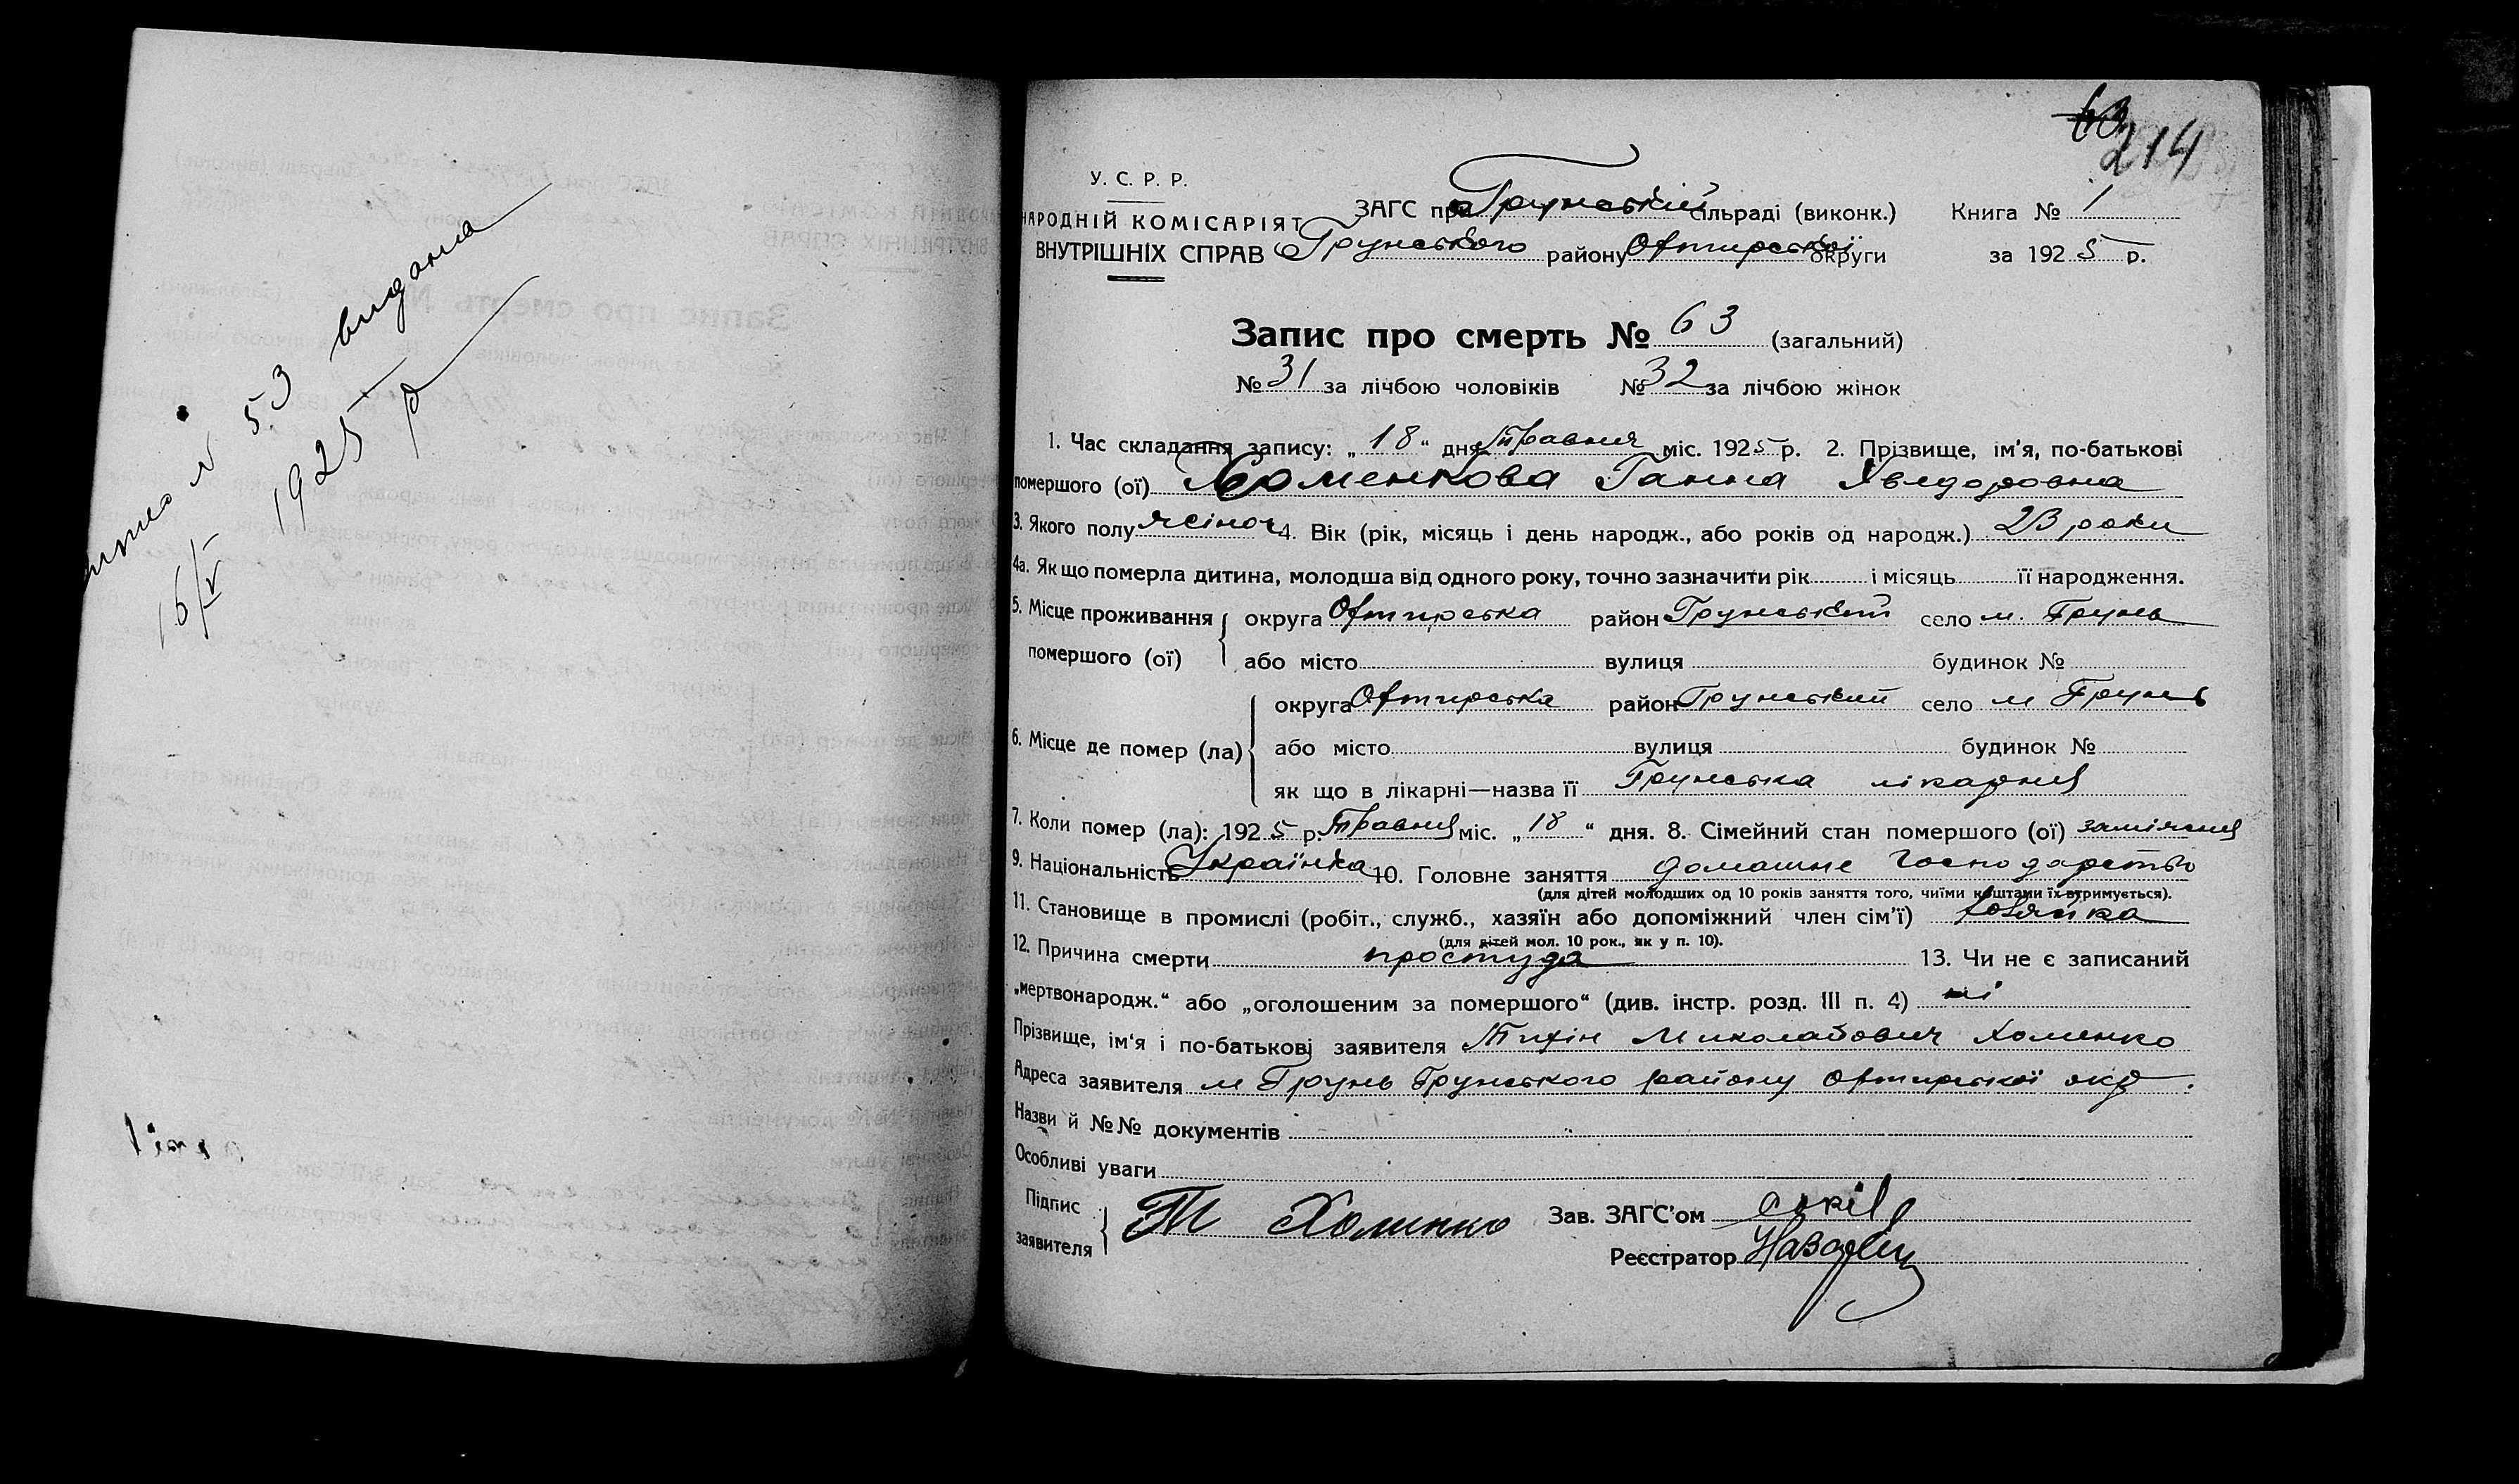 № 53 видана
16/V 1925 р
63
214
У. С. Р. Р.
НАРОДНІЙ КОМІСАРІЯТ
ВНУТРІШНІХ СПРАВ
ЗАГС при Грунській сільраді (виконк.)
Грунського району Охтирської округи
Книга № 1
за 1925 р.
Запис про смерть № 63 (загальний)
№ 31 за лічбою чоловіків № 32 за лічбою жінок
1. Час складання запису: „18“ дня Травня міс. 1925 р. 2. Прізвище, ім'я, по-батькові
помершого (ої) Хоменкова Ганна Хведоровна
3. Якого полу жіноч 4. Вік (рік, місяць і день народж., або років од народж.) 23 роки
4а. Як що померла дитина, молодша від одного року, точно зазначити рік і місяць її народження.
5. Місце проживання помершого (ої) округа Охтирська район Грунський село м. Грунь
або місто вулиця будинок №
6. Місце де помер (ла) округа Охтирська район Грунський село м Грунь
або місто вулиця будинок №
як що в лікарні—назва її Грунська лікарня
7. Коли помер (ла): 1925 р. Травня міс. „18“ дня. 8. Сімейний стан помершого (ої) заміжня
9. Національність Українка 10. Головне заняття домашнє господарство
(для дітей молодших од 10 років заняття того, чиїми коштами їх втримується).
11. Становище в промислі (робіт., служб., хазяїн або допоміжний член сім'ї) хозяйка
(для дітей мол. 10 рок., як у п. 10).
12. Причина смерти простуда 13. Чи не є записаний
„мертвонародж.“ або „оголошеним за помершого“ (див. інстр. розд. III п. 4) ні
Прізвище, ім'я і по-батькові заявителя Тихін Миколайович Хоменко
Адреса заявителя м Грунь Грунського району Охтирської окр.
Назви й №№ документів
Особливі уваги
Підпис заявителя Т Хоменко
Зав. ЗАГС'ом
Реєстратор